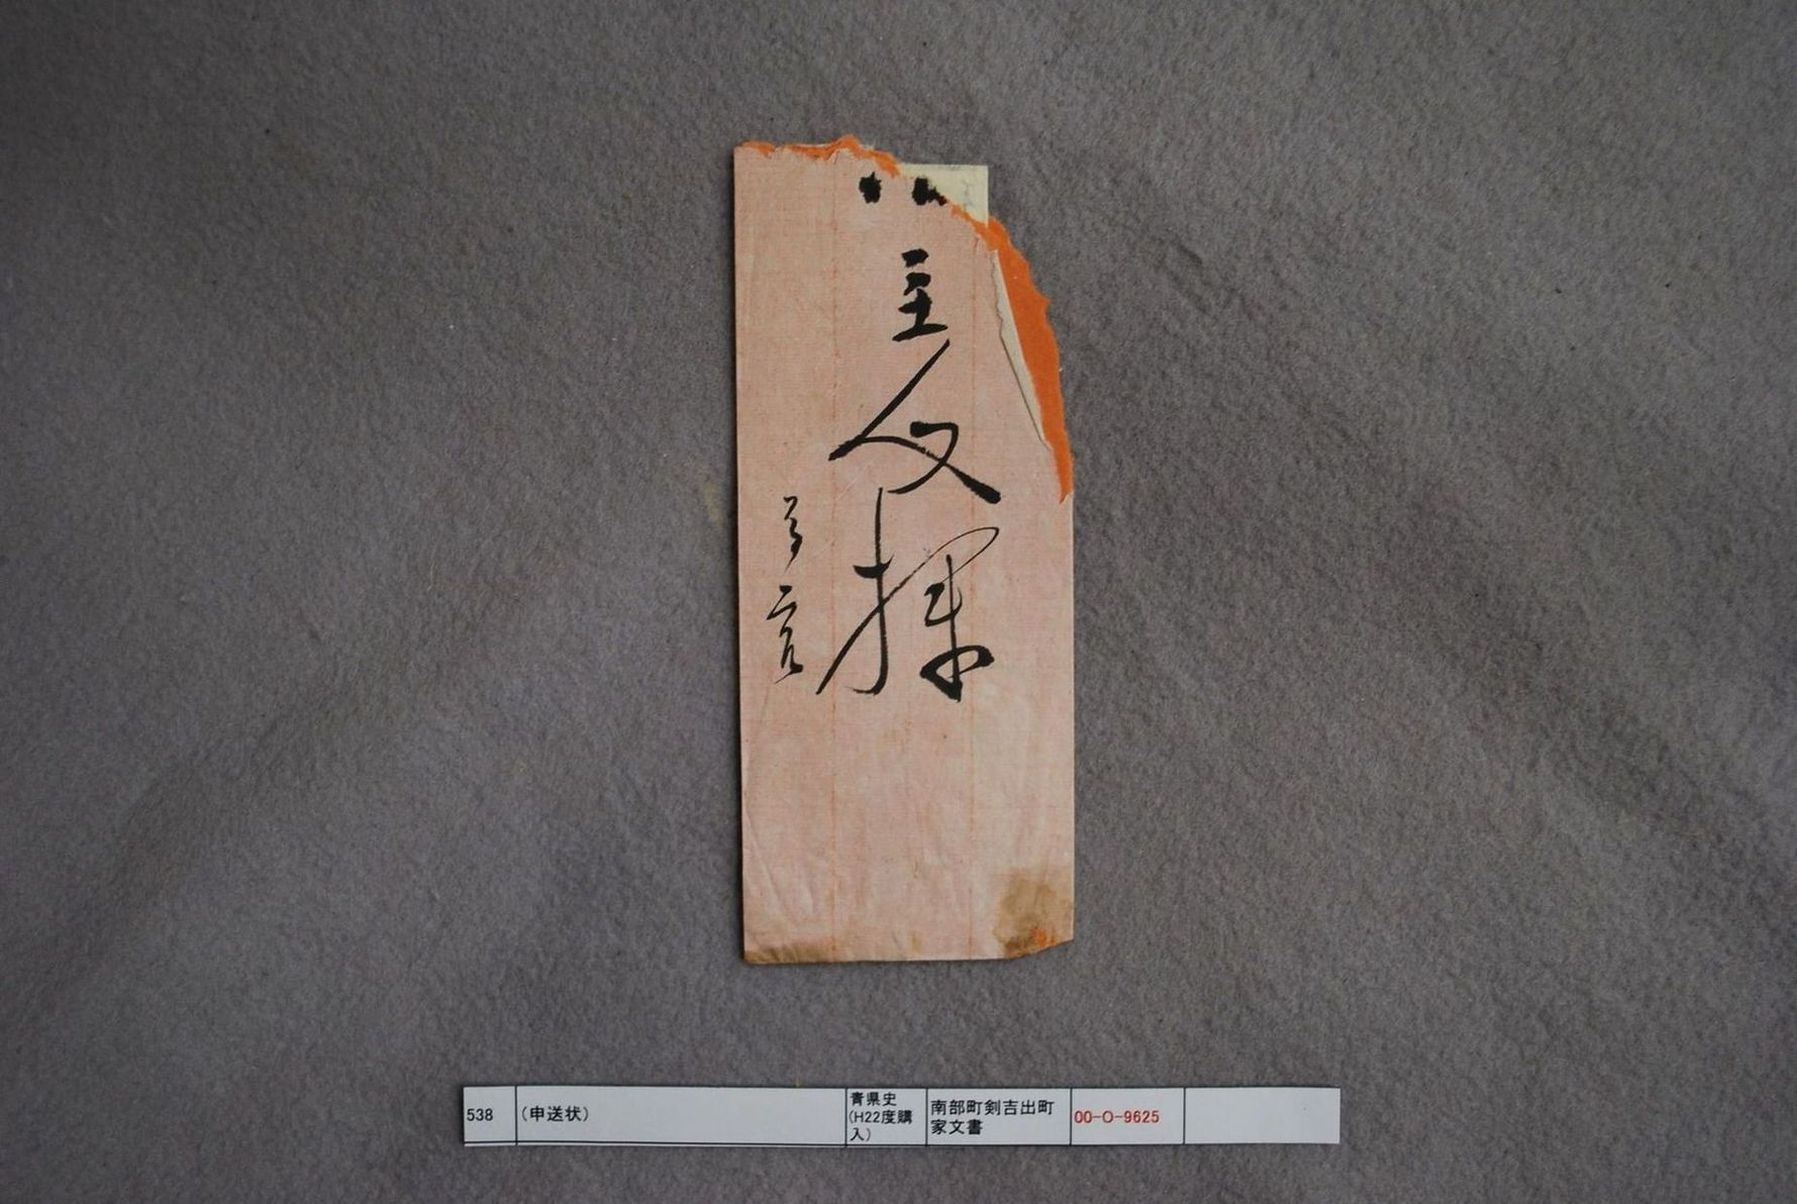 主人揮
538
（申送状）
青県史
（H22度購
入）
南部町剣吉出町
家文書
00-O-9625